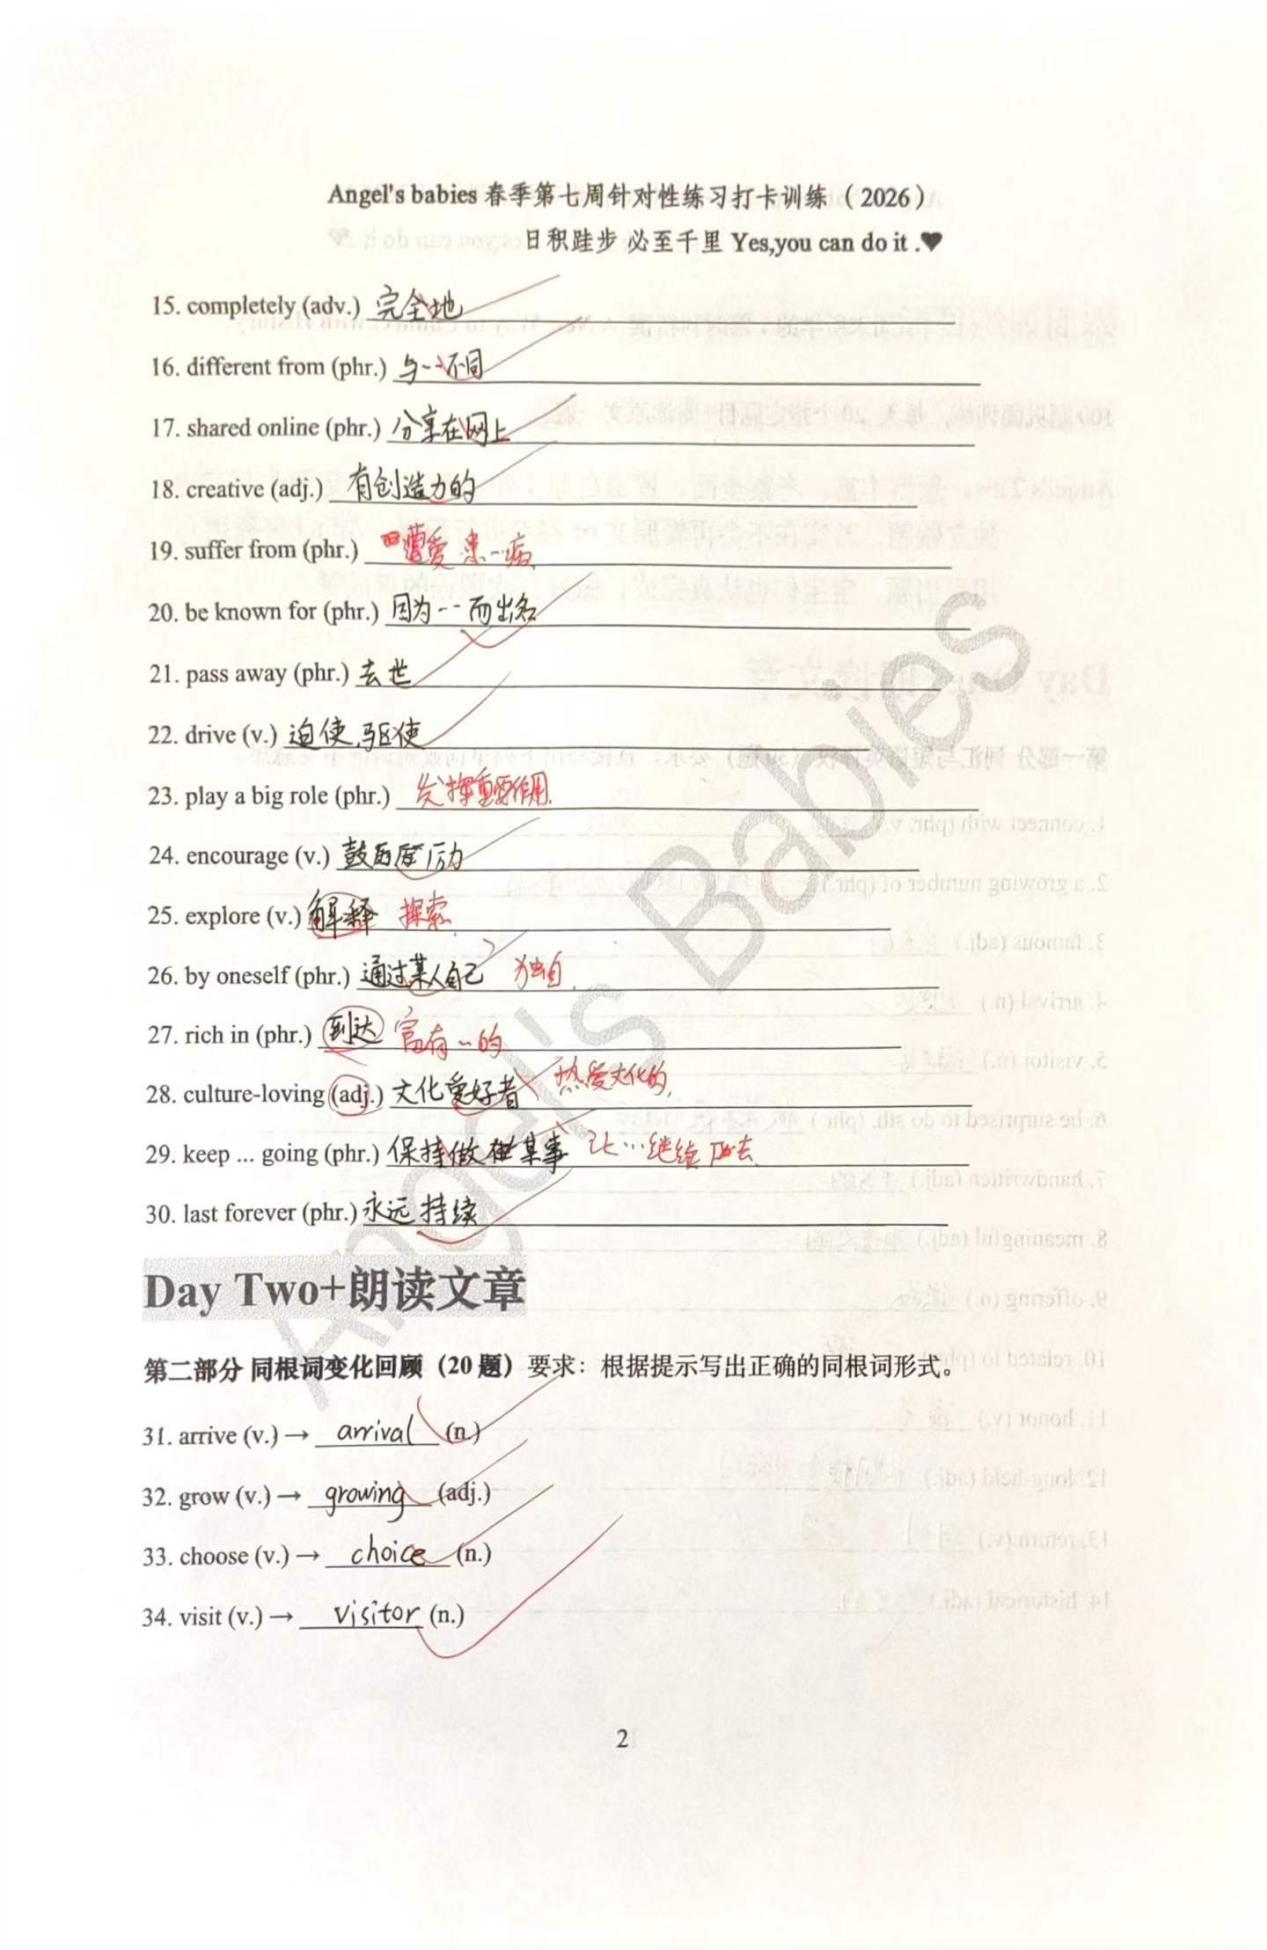 Angel's babies 春季第七周针对性练习打卡训练（2026）
日积跬步 必至千里 Yes,you can do it .♥
15. completely (adv.) 完全地
16. different from (phr.) 与--不同
17. shared online (phr.) 分享在网上
18. creative (adj.) 有创造力的
19. suffer from (phr.) 遭受 患--病
20. be known for (phr.) 因为--而出名
21. pass away (phr.) 去世
22. drive (v.) 迫使,驱使
23. play a big role (phr.) 发挥重要作用.
24. encourage (v.) 鼓励
25. explore (v.) 解释 探索.
26. by oneself (phr.) 通过某人自己 独自.
27. rich in (phr.) 到达 富有--的
28. culture-loving (adj.) 文化爱好者 热爱文化的.
29. keep ... going (phr.) 保持做某事 让…继续下去.
30. last forever (phr.) 永远 持续
Day Two+朗读文章
第二部分 同根词变化回顾（20 题）要求：根据提示写出正确的同根词形式。
31. arrive (v.) → arrival (n.)
32. grow (v.) → growing (adj.)
33. choose (v.) → choice (n.)
34. visit (v.) → visitor (n.)
2
Angel's Babies